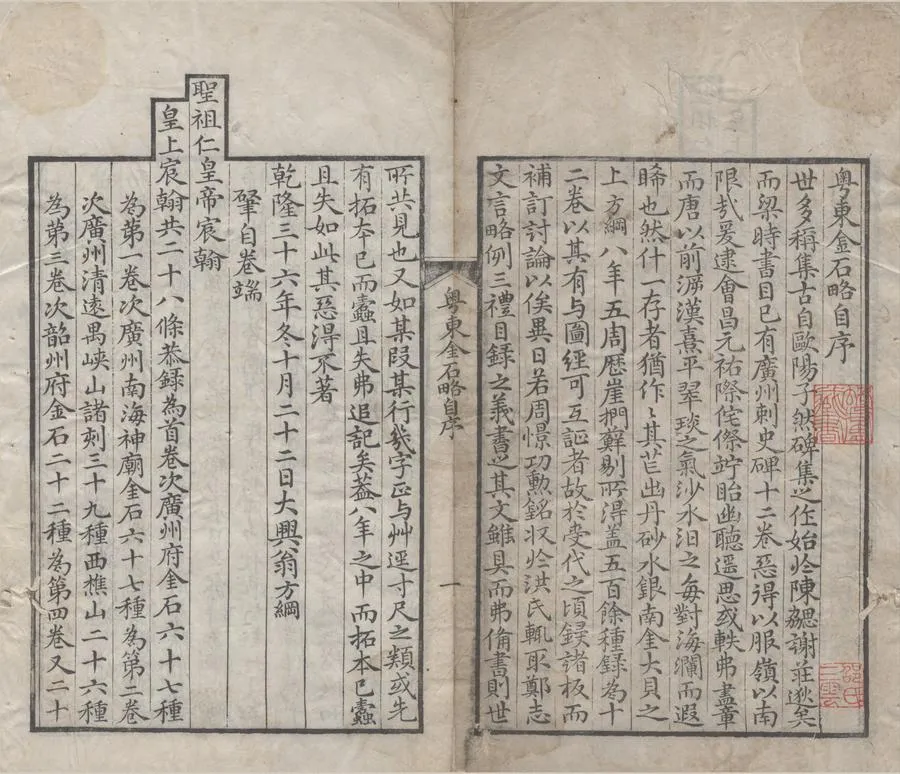 粵東金石略自序
世多稱集古自歐陽子然碑集之作始於陳勰謝莊逖矣
而梁時書目已有廣州刺史碑十二卷惡得以服嶺以南
限哉爰逮會昌元祐際侘傺竚眙幽聽遐思或軼弗盡章
而唐以前泝漢熹平翠琰之氣沙水汨之每對海瀾而遐
睎也然什一存者猶作〻其芒出丹砂水銀南金大貝之
上方綱八年五周歷崖捫蘚剔所得盖五百餘種録為十
二卷以其有与圖經可互証者故於受代之頃録諸板而
補訂討論以俟異日若周憬功勲銘収於洪氏輒取鄭志
文言略例三禮目録之義書之其文雖具而弗俻書則世
粵東金石略自序
一
所共見也又如某叚某行幾字正与艸逕寸尺之類或先
有拓本已而蠹且失弗追記矣葢八年之中而拓本已蠹
且失如此其惡得不著
乾隆三十六年冬十月二十二日大興翁方綱
肇自卷端
聖祖仁皇帝宸翰
皇上宸翰共二十八條恭録為首卷次廣州府金石六十七種
為第一卷次廣州南海神廟金石六十七種為第二卷
次廣州清遠禺峽山諸刻三十九種西樵山二十六種
為第三卷次韶州府金石二十二種為第四卷又二十